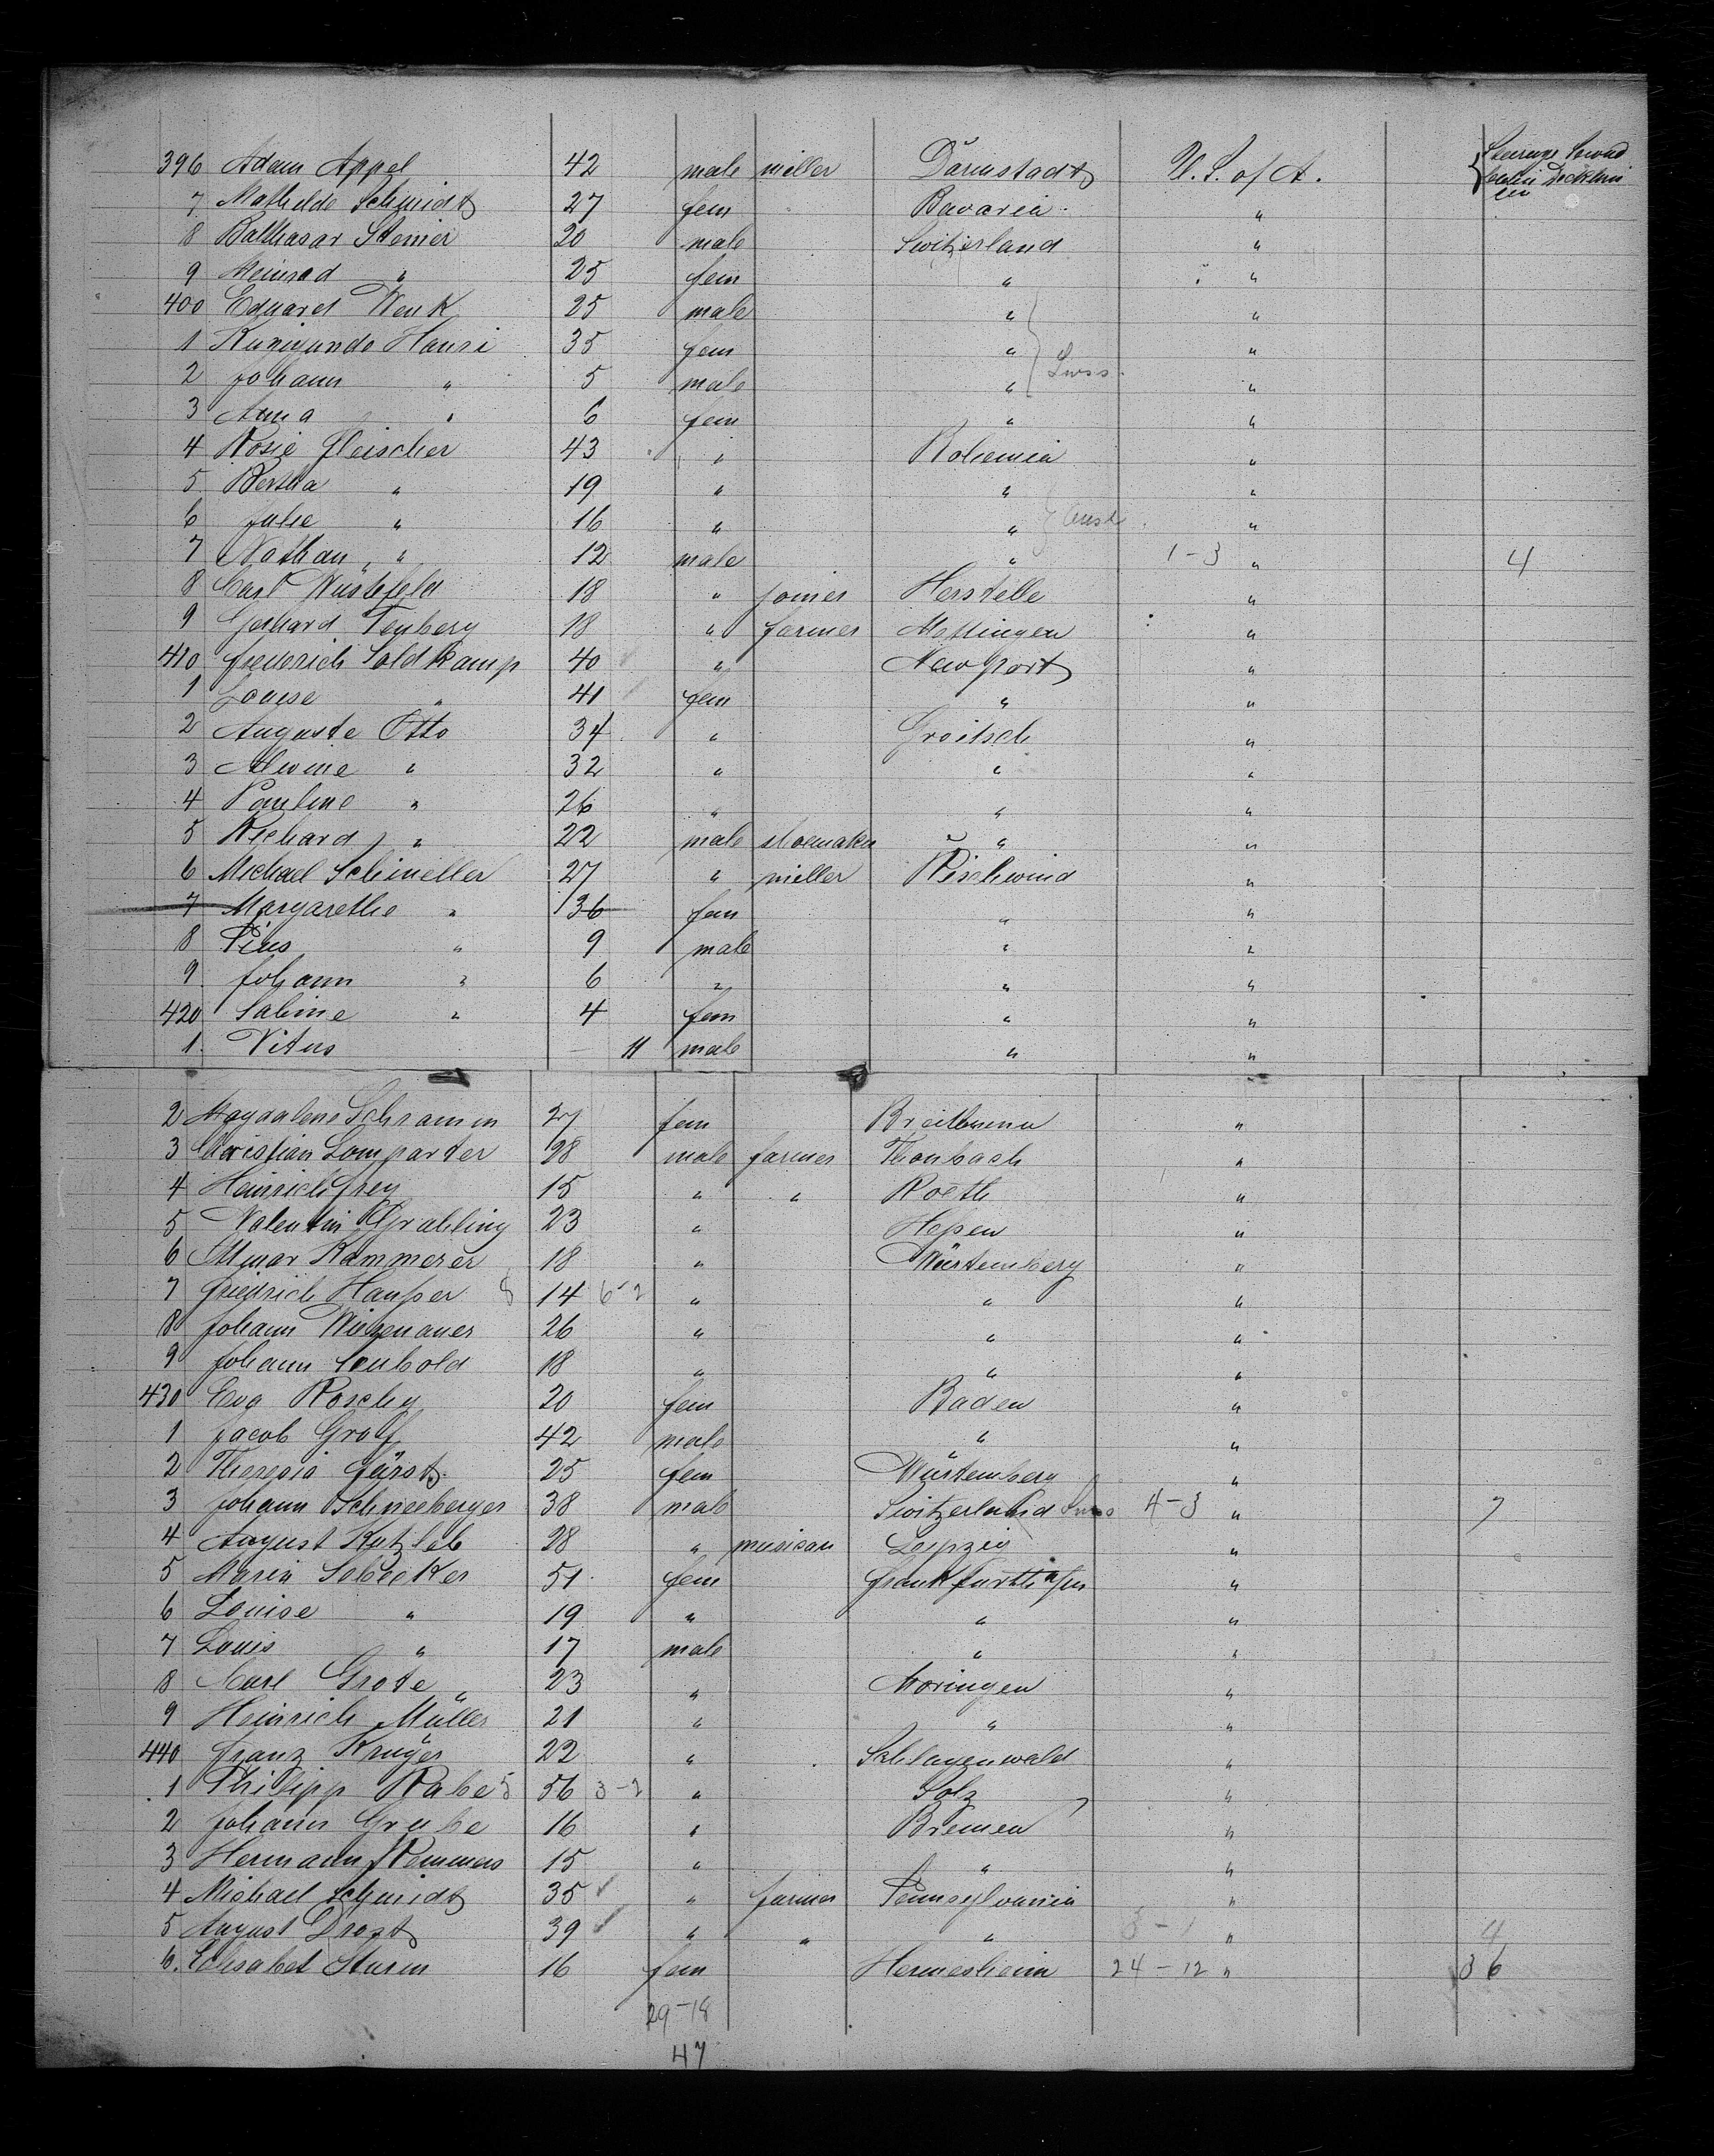 396 Adam Appel 42 male miller Darmstadt U. S. of A. Steerage
7 Mathilde Schmidt 27 fem Bavaria "
8 Balthasar Steiner 20 male Switzerland "
9 Meinrad " 25 fem " "
400 Eduard Wenk 25 male " "
1 Kunigunde Hauri 35 fem " "
2 Johann " 5 male " Swss. "
3 Anna " 6 fem " "
4 Rosie Fleischer 43 " Bohemia "
5 Bertha " 19 " " "
6 Julie " 16 " " Aust "
7 Nathan " 12 male " 1-3 " 4
8 Carl Wüstefeld 18 " joiner Herstelle "
9 Gerhard Tenberg 18 " farmer Mettingen "
410 Frederich Soldkamp 40 " Newport "
1 Louise " 41 fem " "
2 Auguste Otto 34 " Groitsch "
3 Alwine " 32 " " "
4 Pauline " 26 " " "
5 Richard " 22 male shoemaker " "
6 Michael Schineller 27 " miller Rischwind "
7 Margarethe " 36 fem " "
8 Pius " 9 male " "
9 Johann " 6 " " "
420 Sabine " 4 fem " "
1. Vitus - 11 male " "
2 Magdalene Schramm 27 fem "
3 Christian Lomparter 28 male farmer "
4 Heinrich Frey 15 " " Roeth "
5 Valentin Grabling 23 " Hessen "
6 Kammerer 18 " Würtemberg "
7 Friedrich Hausser 8 14 6-2 " " "
8 Johann Wiesenauer 26 " " "
9 Johann Leubold 18 " " "
430 Eva 20 fem Baden "
1 Jacob Graf 42 male " "
2 Theresia Fürst 25 fem Würtemberg "
3 Johann Schneeberger 38 male Switzerland Swss 4-3 " 7
4 August Kutzleb 28 " musican Leipzig "
5 Maria Sobecker 51 fem Frankfurth "
6 Louise " 19 " " "
7 Louis " 17 male " "
8 Carl Grote 23 " Moringen "
9 Heinrich Müller 21 " " "
440 Franz Krüger 22 " Schlagenwald "
1 Philipp Rabe 5 56 3-2 " Solz "
2 Johann Grube 16 " Bremen "
3 Hermann Remmers 15 " " "
4 Michael Schmidt 35 " farmer Pennsylvania "
5 August Drost 39 " " " 3-1 " 4
6. Elisabet Sturm 16 fem Hermesheim 24-12 " 36
29-18
47